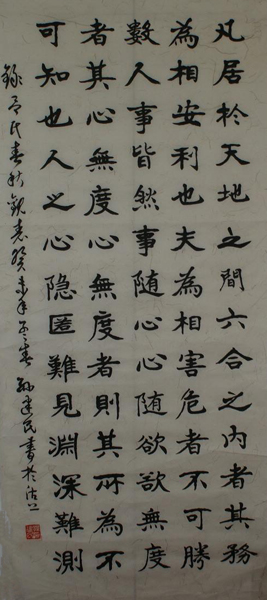 凡居於天地之間六合之内者其務
為相安利也夫為相害危者不可勝
數人事皆然事隨心心隨欲欲無度
者其心無度心無度者則其所為不
可知也人之心隐匿難見淵深難測
錄呂氏春秋觀表癸未年冬 孫建民書於